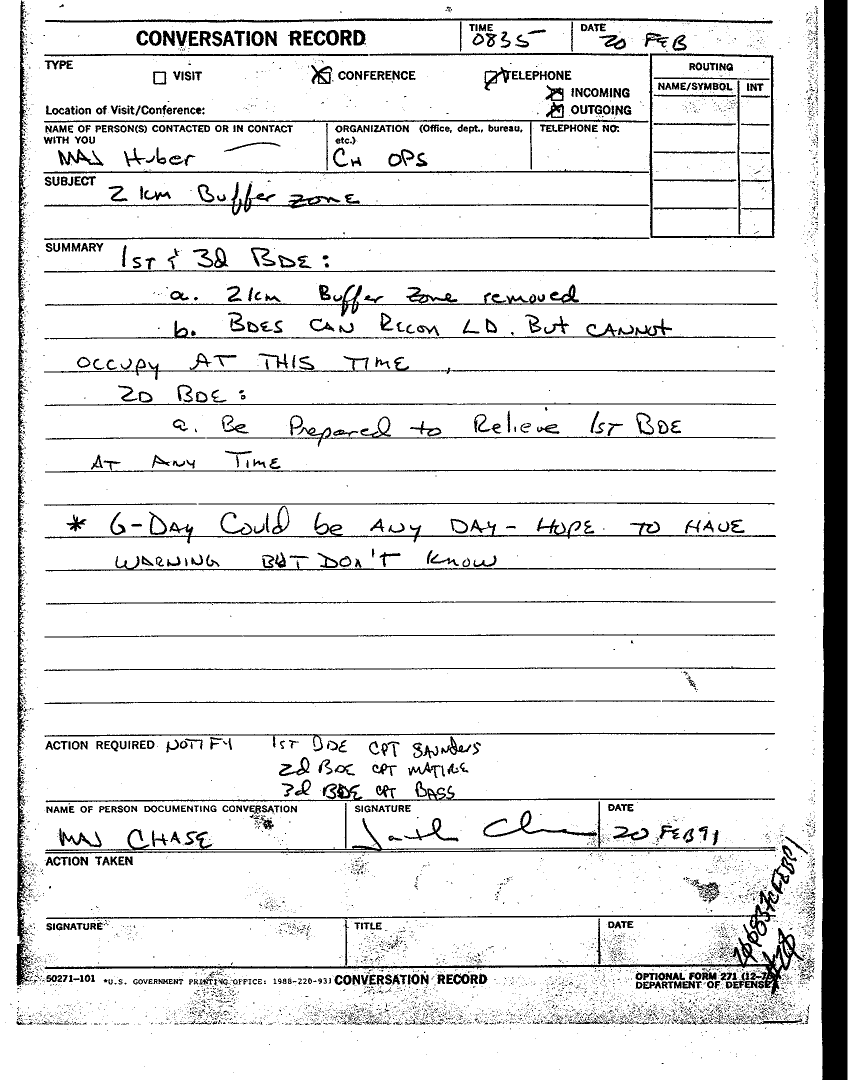 CONVERSATION RECORD
TIME
0835
DATE
20 FEB
TYPE
VISIT
CONFERENCE
TELEPHONE
INCOMING
OUTGOING
ROUTING
NAME/SYMBOL
INT
Location of Visit/Conference:
NAME OF PERSON(S) CONTACTED OR IN CONTACT
WITH YOU
MAJ Huber
ORGANIZATION (Office, dept., bureau,
etc.)
CH OPS
TELEPHONE NO:
SUBJECT
2 km Buffer zone
SUMMARY
1ST & 3d BDE:
a. 2 km Buffer Zone removed
b. BDES CAN Recon LD. But CANNOT
OCCUPY AT THIS TIME,
2D BDE:
a. Be Prepared to Relieve 1ST BDE
AT ANY TIME
* G-DAY Could be ANY DAY - HOPE TO HAVE
WARNING BUT DON'T KNOW
ACTION REQUIRED NOTIFY 1ST BDE CPT SAUNDERS
2d BDE CPT MATIRE
3d BDE CPT BASS
NAME OF PERSON DOCUMENTING CONVERSATION
MAJ CHASE
SIGNATURE
DATE
20 FEB 91
ACTION TAKEN
SIGNATURE
TITLE
DATE
50271-101
*U.S. GOVERNMENT PRINTING OFFICE: 1988-220-931
CONVERSATION RECORD
OPTIONAL FORM 271 (12-76)
DEPARTMENT OF DEFENSE